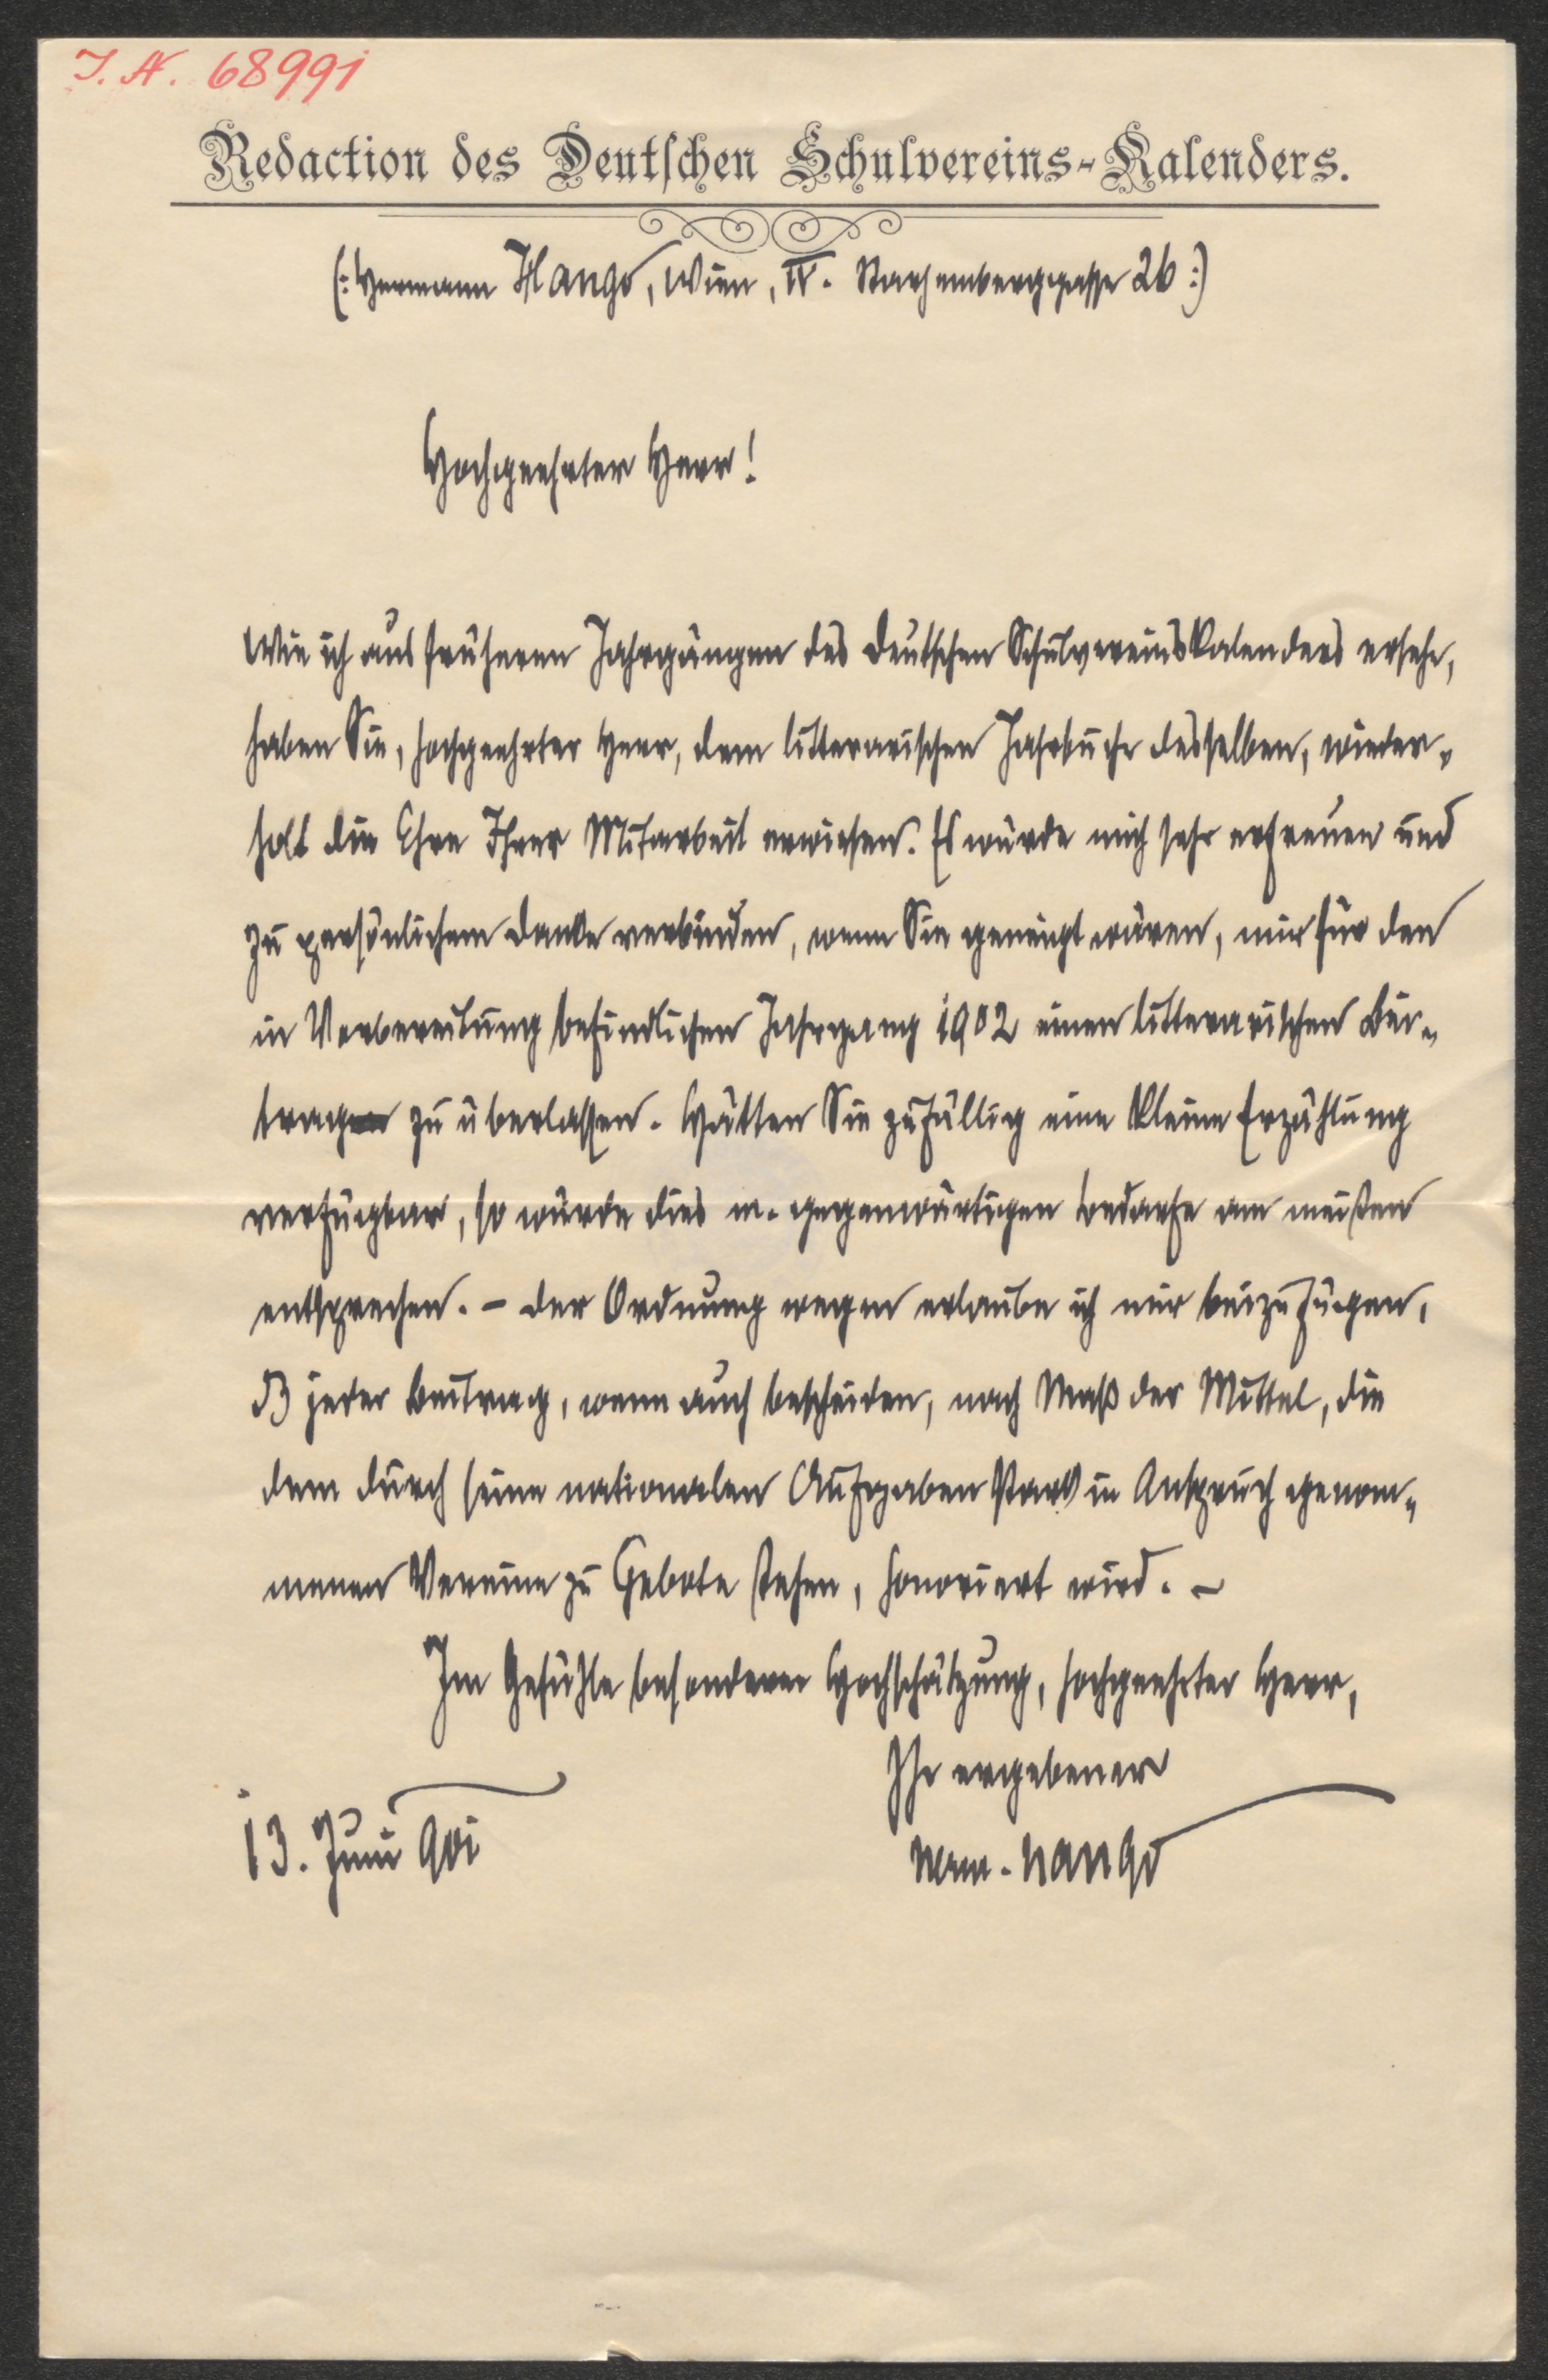 I. N. 68991
Redaction des Deutschen Schulvereins-Kalenders.
(: Hermann Hango, Wien, IV. Starhemberggasse 26 :)
Hochgeehrter Herr!
Wie ich aus früheren Jahrgängen des deutschen Schulvereinskalenders ersehe,
haben Sie, hochgeehrter Herr, dem litterarischen Jahrbuche desselben, wieder-
holt die Ehre Ihrer Mitarbeit erwiesen. Es würde mich sehr erfreuen und
zu persönlichem Danke verbinden, wenn Sie geneigt wären, mir für den
in Vorbereitung befindlichen Jahrgang 1902 einen litterarischen Bei-
trag zu überlassen. Hätten Sie zufällig eine kleine Erzählung
verfügbar, so würde dies m. gegenwärtigen Bedarfe am meisten
entsprechen. – Der Ordnung wegen erlaube ich mir beizufügen,
dß jeder Beitrag, wenn auch bescheiden, nach Maß der Mittel, die
dem durch seine nationalen Aufgaben stark in Anspruch genom-
menen Vereine zu Gebote stehen, honoriert wird. –
Im Gefühle besonderer Hochschätzung, hochgeehrter Herr,
Ihr ergebener
13. Juni 901
Herm. Hango